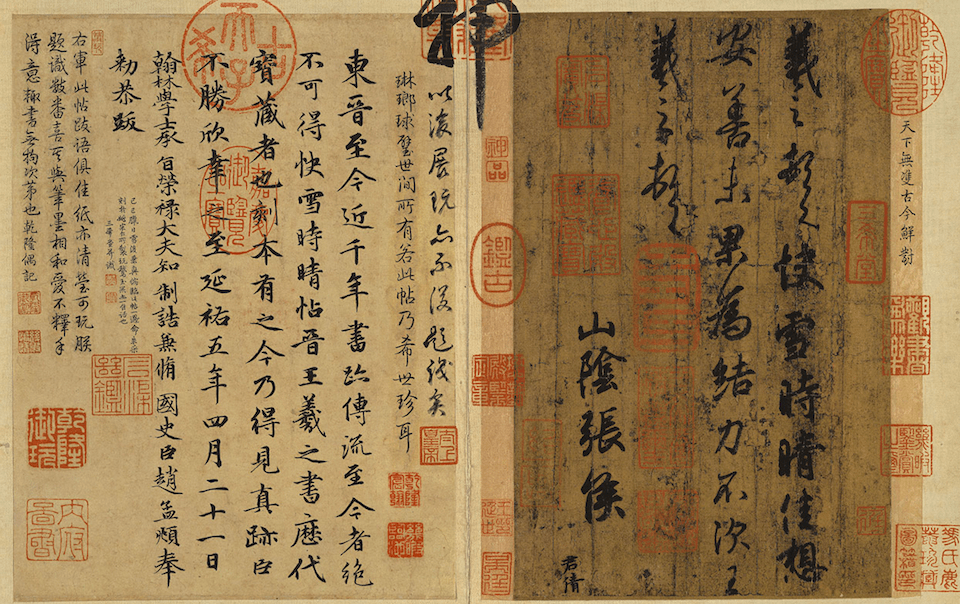 天下無雙古今鮮對
羲之頓首快雪時晴佳想
安善未果為結力不次王
羲之頓首
山陰張侯
君倩
三希堂
神品
鑑古
神
以後展玩亦不復題識矣
琳瑯球璧世間所有若此帖乃希世珍耳
東晉至今近千年書跡傳流至今者絕
不可得快雪時晴帖晉王羲之書歷代
寶藏者也刻本有之今乃得見真跡臣
不勝欣幸之至延祐五年四月二十一日
翰林學士承旨榮祿大夫知制誥兼脩國史臣趙孟頫奉
勑恭跋
右軍此帖跋語俱佳紙亦清瑩可玩朕
題識數番喜其與筆墨相和愛不釋手
得意輒書無拘次第也乾隆偶記
乾隆御玩